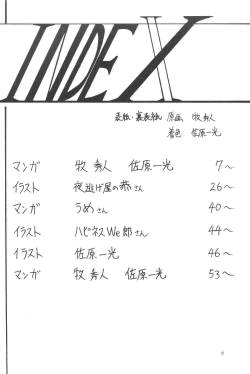 INDEX
表紙・裏表紙 原画 牧 秀人
着色 佐原一光
マンガ 牧 秀人 佐原一光 7〜
イラスト 夜逃げ屋の恭さん 26〜
マンガ うめさん 40〜
イラスト ハピネスWe郎さん 44〜
イラスト 佐原一光 46〜
マンガ 牧 秀人 佐原一光 53〜